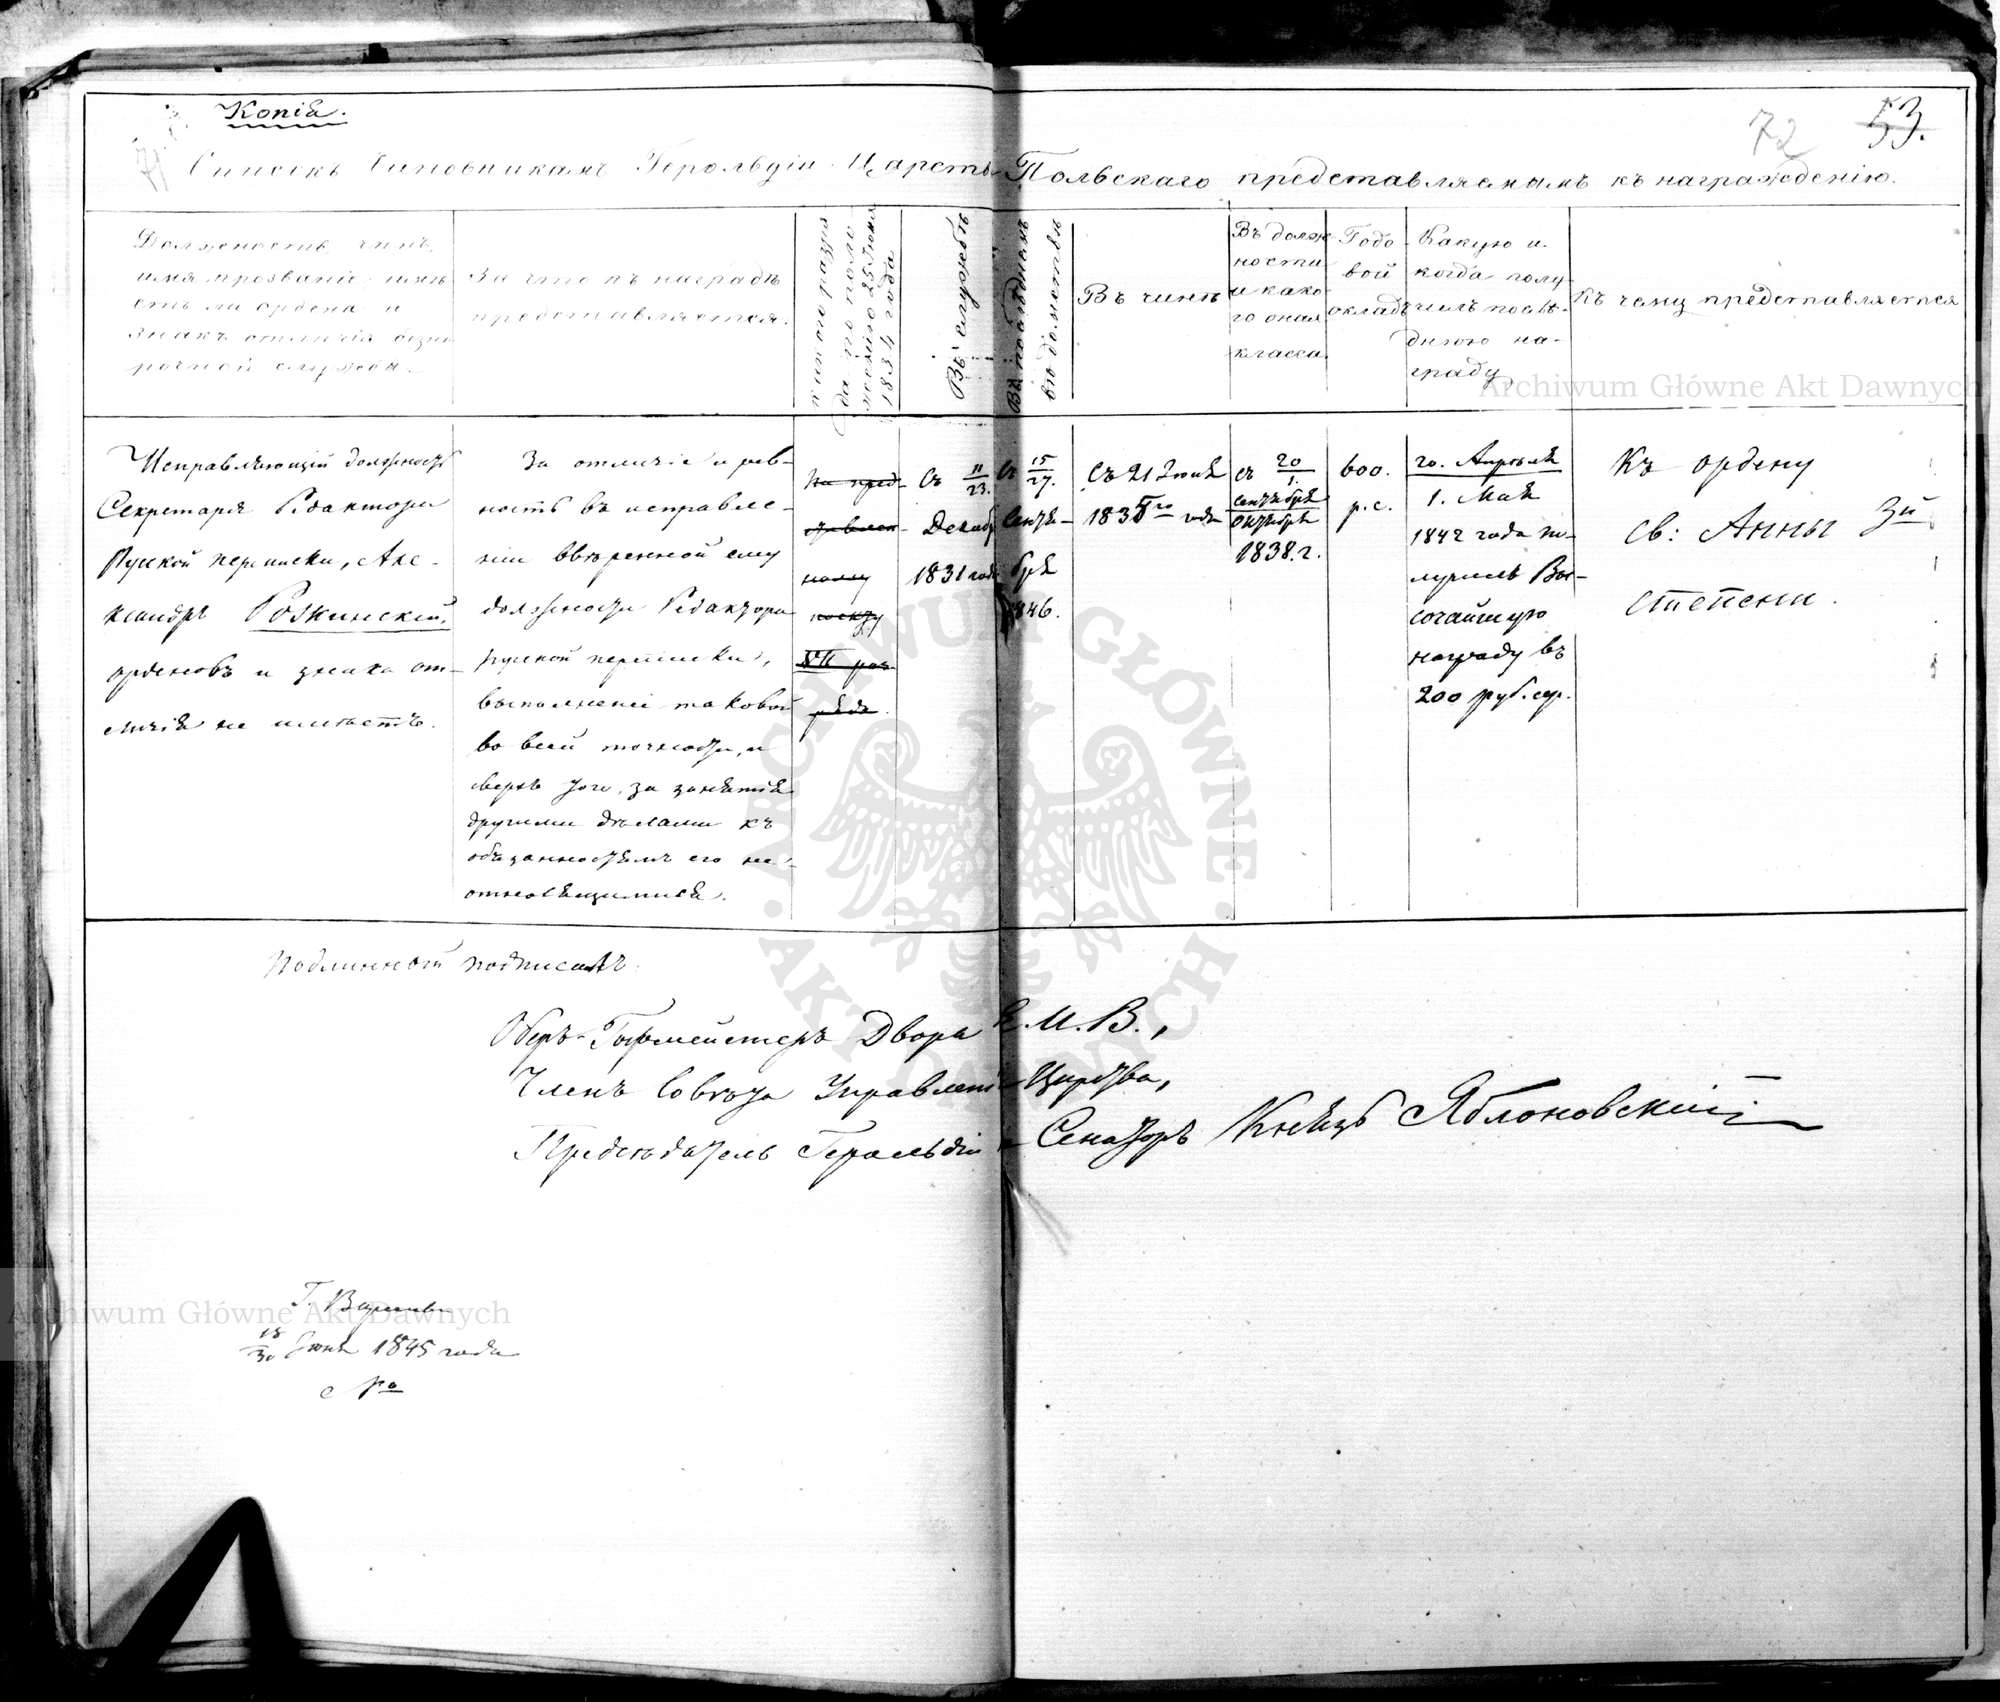 Копія.
72 53.
Списокъ Чиновникамъ Герольдіи Царства Польскаго представляемымъ къ награжденію.
Должность, чинъ,
имя прозваніе, имѣ-
етъ ли ордена и
знакъ отличія безпо-
рочной службы.
За что къ наградѣ
представляется.
къ какого разря
да по поло
женію 25 Іюня
1834 года
Въ службѣ
Въ послѣднемъ
вѣдомствѣ
Въ чинѣ
Въ долж-
ности
и како-
го оная
класса
Годо-
вой
окладъ
Какую и
когда полу-
чилъ послѣ-
днюю на-
граду
Къ чему представляется
Исправляющій должность
Секретаря Редактора
Русской переписки, Але-
ксандръ Рожинскій,
орденовъ и знака от-
личія не имѣетъ.
За отличіе и рев-
ность въ исправле-
ніи ввѣренной ему
должности Редактора
русской переписки,
выполненіе таковой
во всей точности, и
сверхъ того, за занятія
другими дѣлами къ
обязанностямъ его не-
относящимися.
Съ 11/23.
Декабр
1831 года
Съ 15/27.
Сентя-
бря
1846.
Съ 21 Іюня
1835го года
съ 20/1.
Сентября
Октября
1838. г.
600.
р. с.
20. Апрѣля
1. Мая
1842 года по-
лучилъ Вы-
сочайшую
награду въ
200 руб. сер.
Къ ордену
Св: Анны 3й
степени.
Подлинной подписалъ:
Оберъ-Гофмейстеръ Двора Е. И. В.,
Членъ Совѣта Управленія Царства,
Предсѣдатель Герольдіи Сенаторъ Князь Яблоновскій
Г. Варшава
18/30 Іюня 1845 года
№
Archiwum Główne Akt Dawnych
Archiwum Główne Akt Dawnych
ARCHIWUM GŁÓWNE AKT DAWNYCH